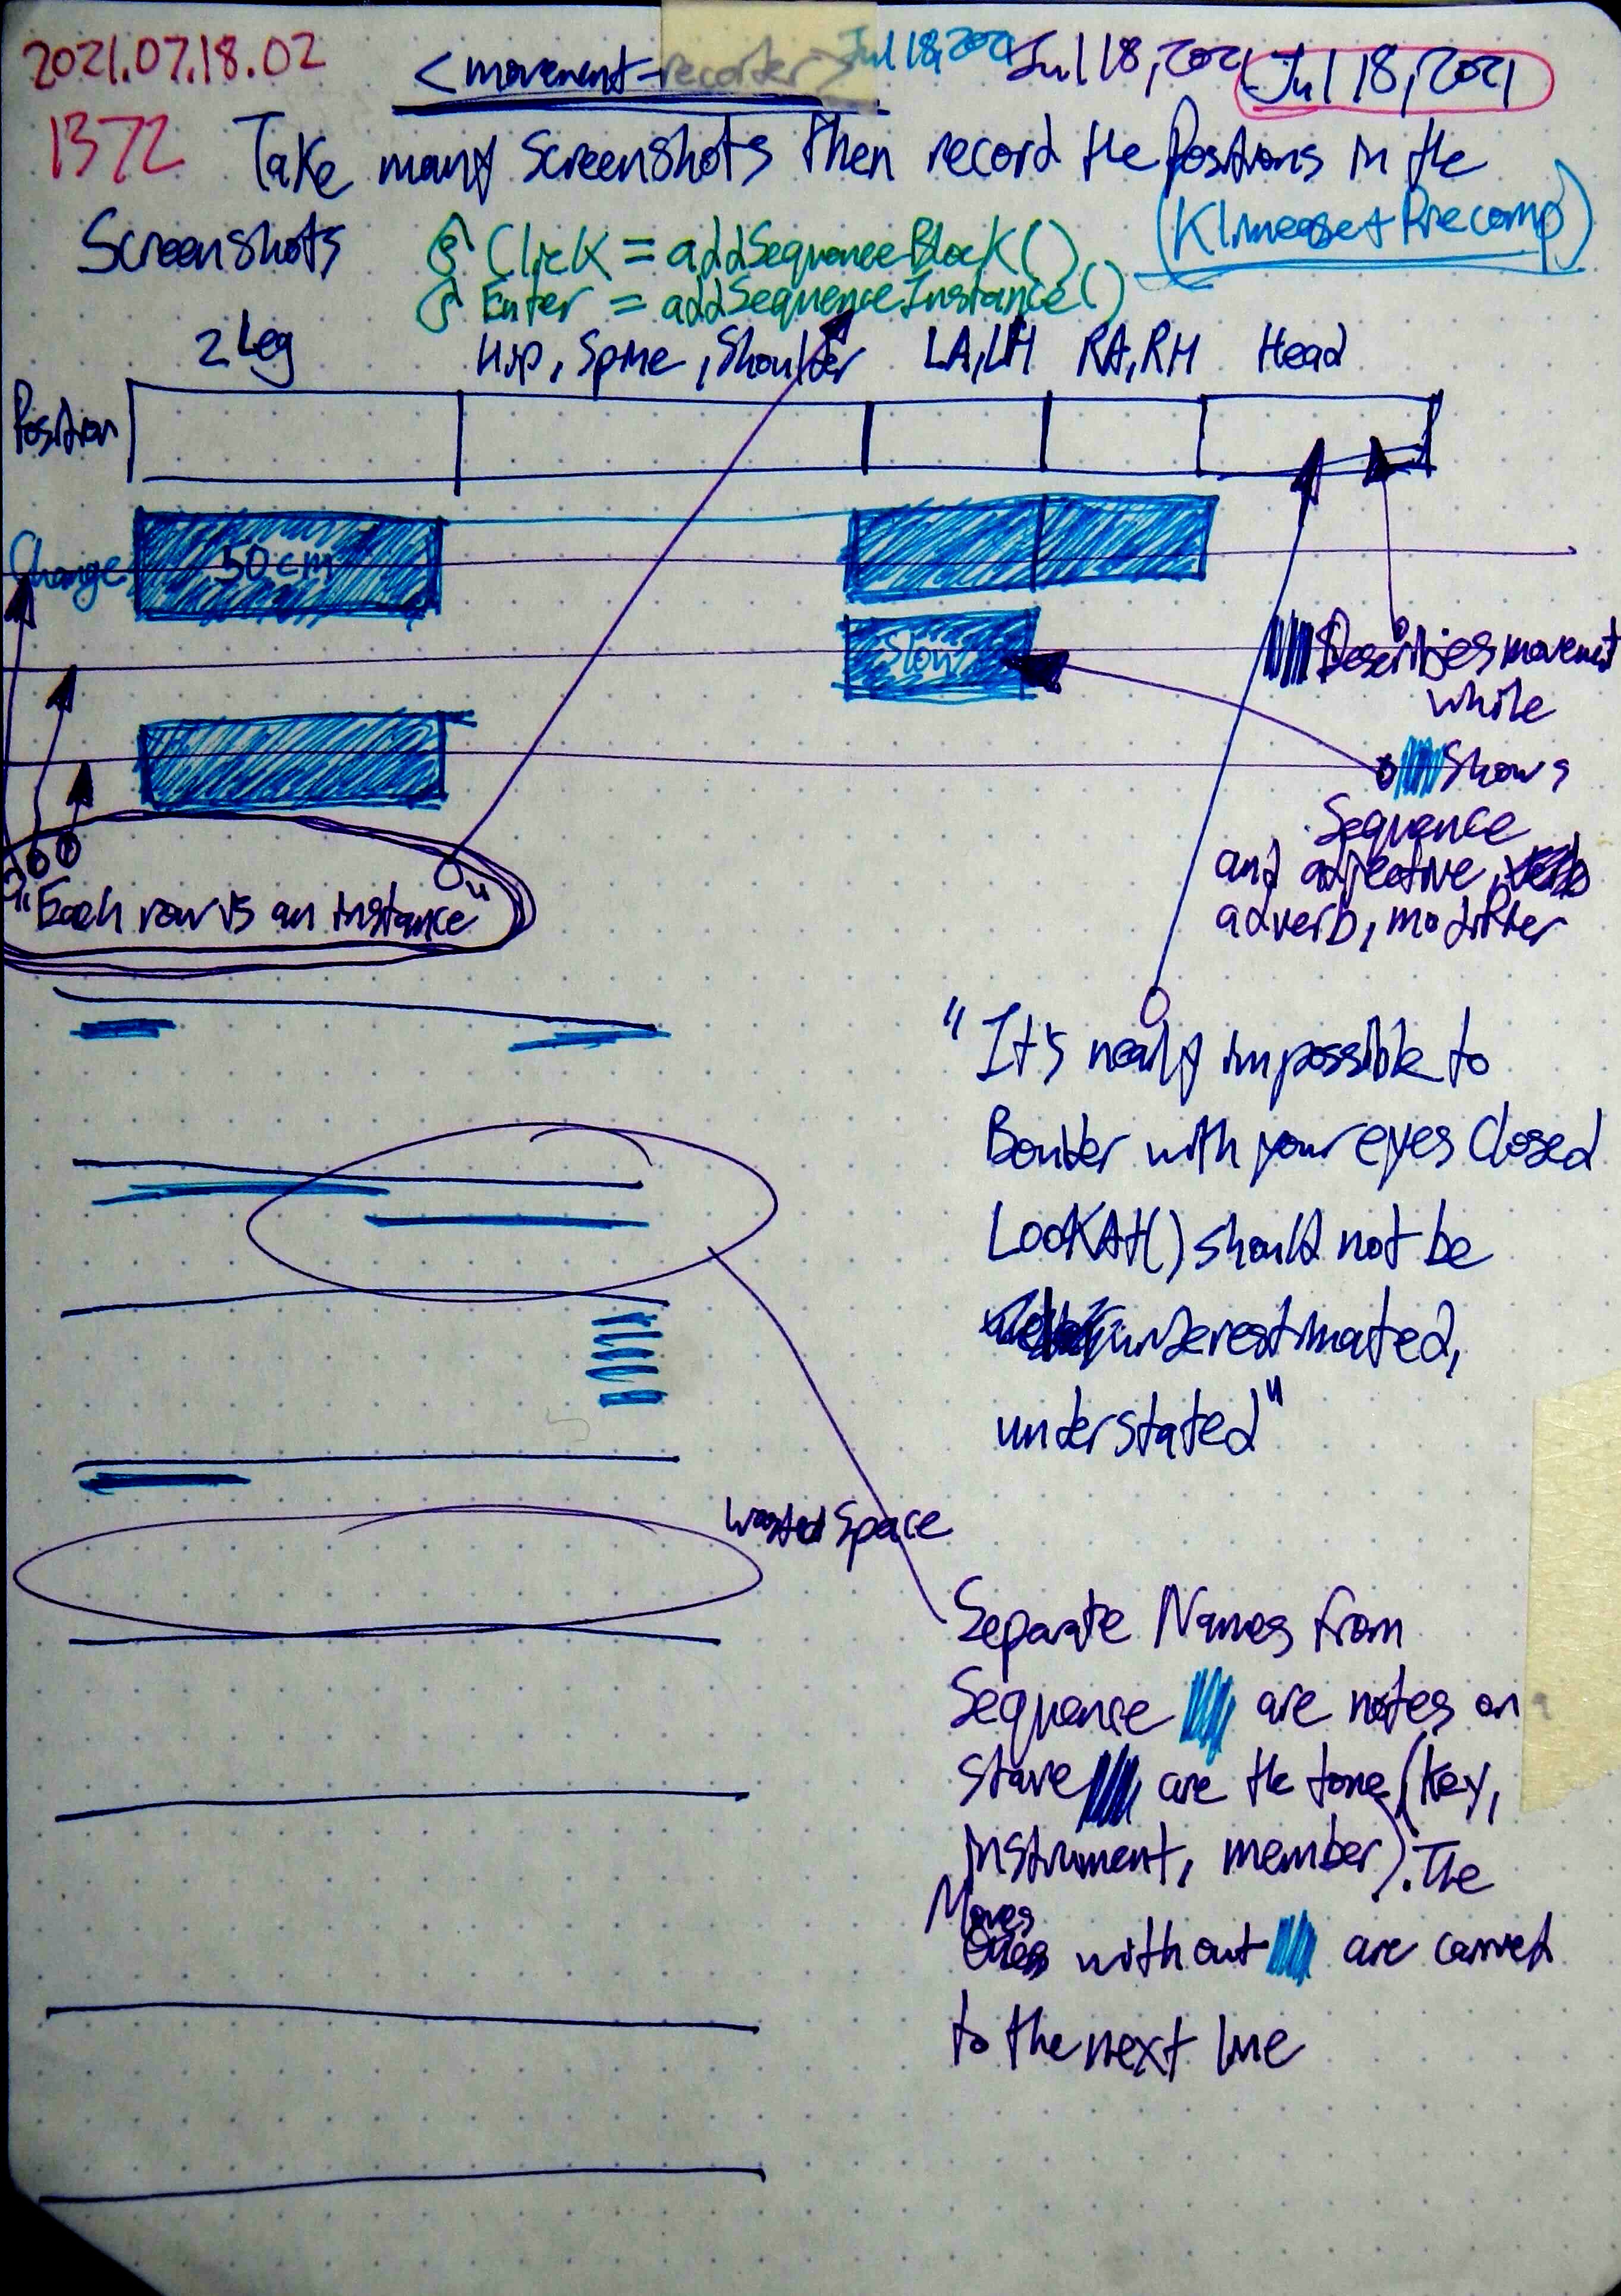 2021.07.18.02
<movement-recorder> Jul 18, 2021 Jul 18, 2021 Jul 18, 2021
1372 Take many Screenshots then record the Positions in the
Screenshots
Click = addSequenceBlock()
Enter = addSequenceInstance()
2 Leg Hip, Spine, Shoulder LA, LH RA, RH Head
Position
Change 50cm
Slow
Describes movement
while
Shows
Sequence
and adjective,
adverb, modifier
"Each row is an instance"
"It's nearly impossible to
Boulder with your eyes closed
LookAt() should not be
underestimated,
understated"
Wasted Space
Separate Names from
Sequence are notes on a
stave are the tone (key,
instrument, member). The
Moves
without are carried
to the next line